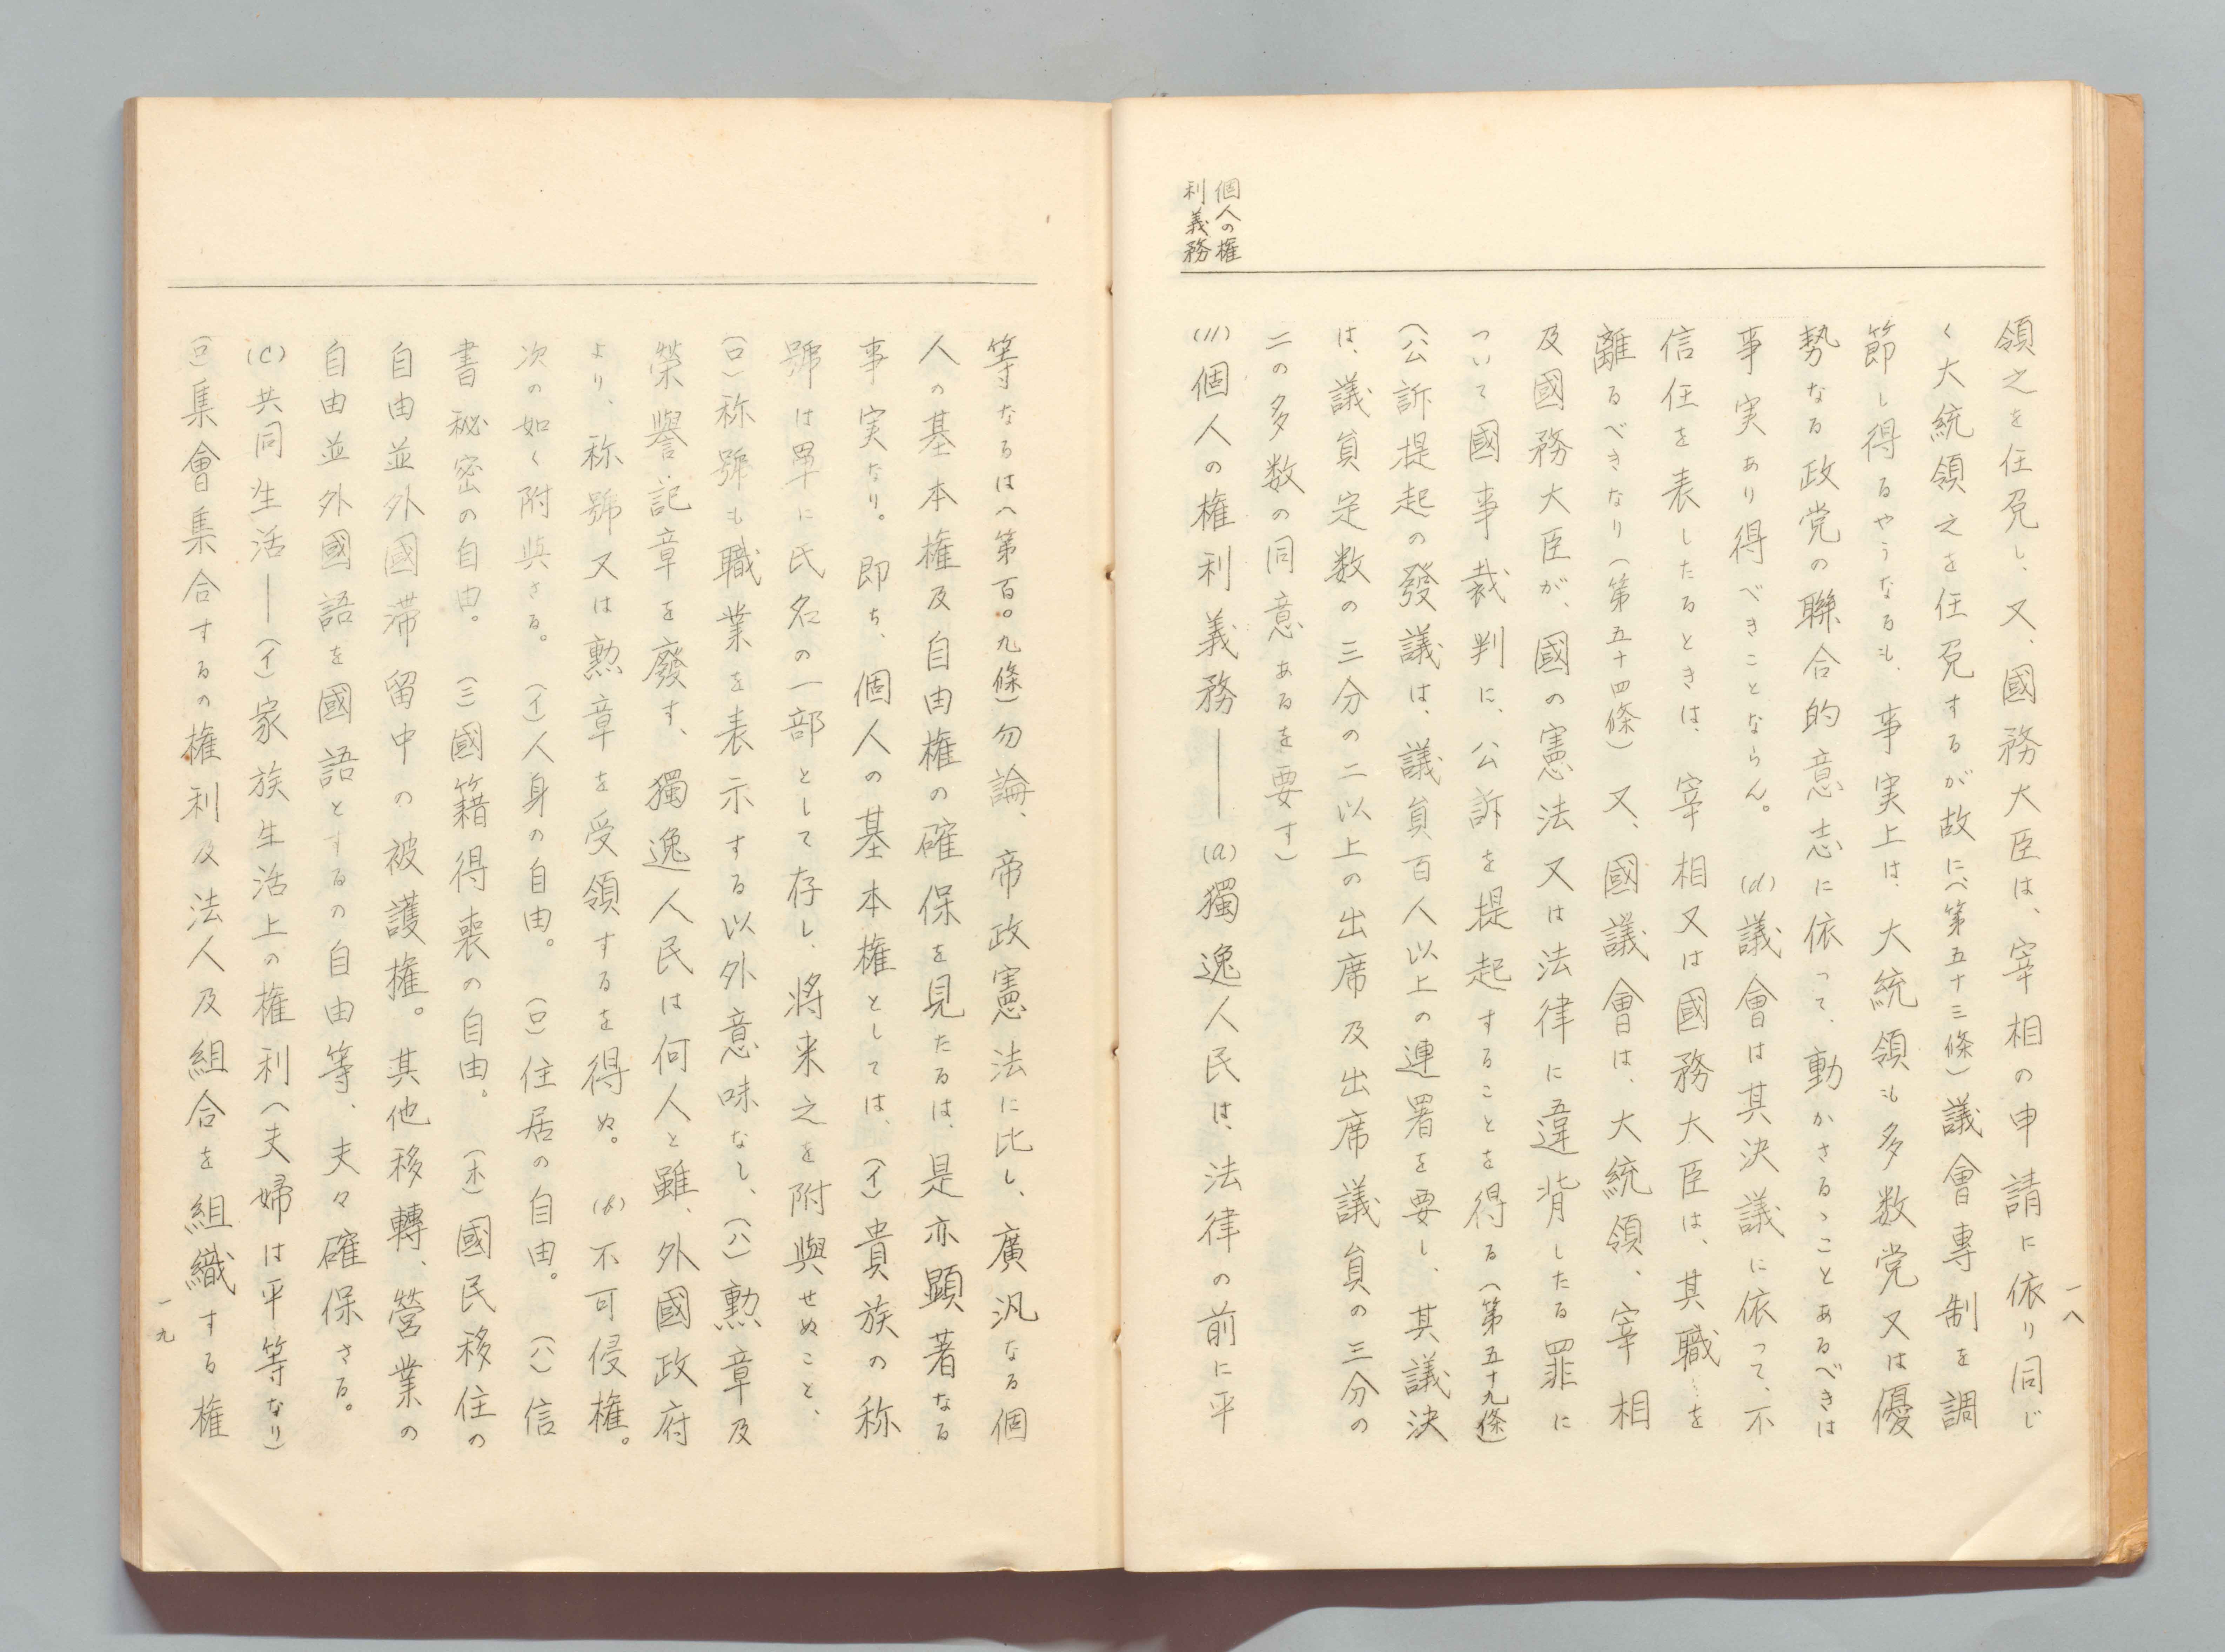 一八
個人の権
利義務
領之を任免し、又、國務大臣は、宰相の申請に依り同じ
く大統領之を任免するが故に（第五十三條）議會專制を調
節し得るやうなるも、事実上は、大統領も多数党又は優
勢なる政党の聯合的意志に依って、動かさるゝことあるべきは
事実あり得べきことならん。 (d)議會は其決議に依って、不
信任を表したるときは、宰相又は國務大臣は、其職を
離るべきなり（第五十四條）又、國議會は、大統領、宰相
及國務大臣が、國の憲法又は法律に違背したる罪に
ついて國事裁判に、公訴を提起することを得る（第五十九條）
（公訴提起の發議は、議員百人以上の連署を要し、其議決
は、議員定数の三分の二以上の出席及出席議員の三分の
二の多数の同意あるを要す）
(11)個人の権利義務――(a)獨逸人民は、法律の前に平
等なるは（第百〇九條）勿論、帝政憲法に比し、廣汎なる個
人の基本権及自由権の確保を見たるは、是亦顕著なる
事実なり。即ち、個人の基本権としては、（イ）貴族の称
號は單に氏名の一部として存し、將来之を附與せぬこと、
（ロ）称號も職業を表示する以外意味なし、（ハ）勲章及
榮譽記章を廢す、獨逸人民は何人と雖、外國政府
より、称號又は勲章を受領するを得ぬ。 (b)不可侵権。
次の如く附與さる。（イ）人身の自由。（ロ）住居の自由。（ハ）信
書秘密の自由。（ニ）國籍得喪の自由。（ホ）國民移住の
自由並外國滞留中の被護権。其他移轉、營業の
自由並外國語を國語とするの自由等、夫々確保さる。
(C)共同生活――（イ）家族生活上の権利（夫婦は平等なり）
（ロ）集會集合するの権利及法人及組合を組織する権
一九